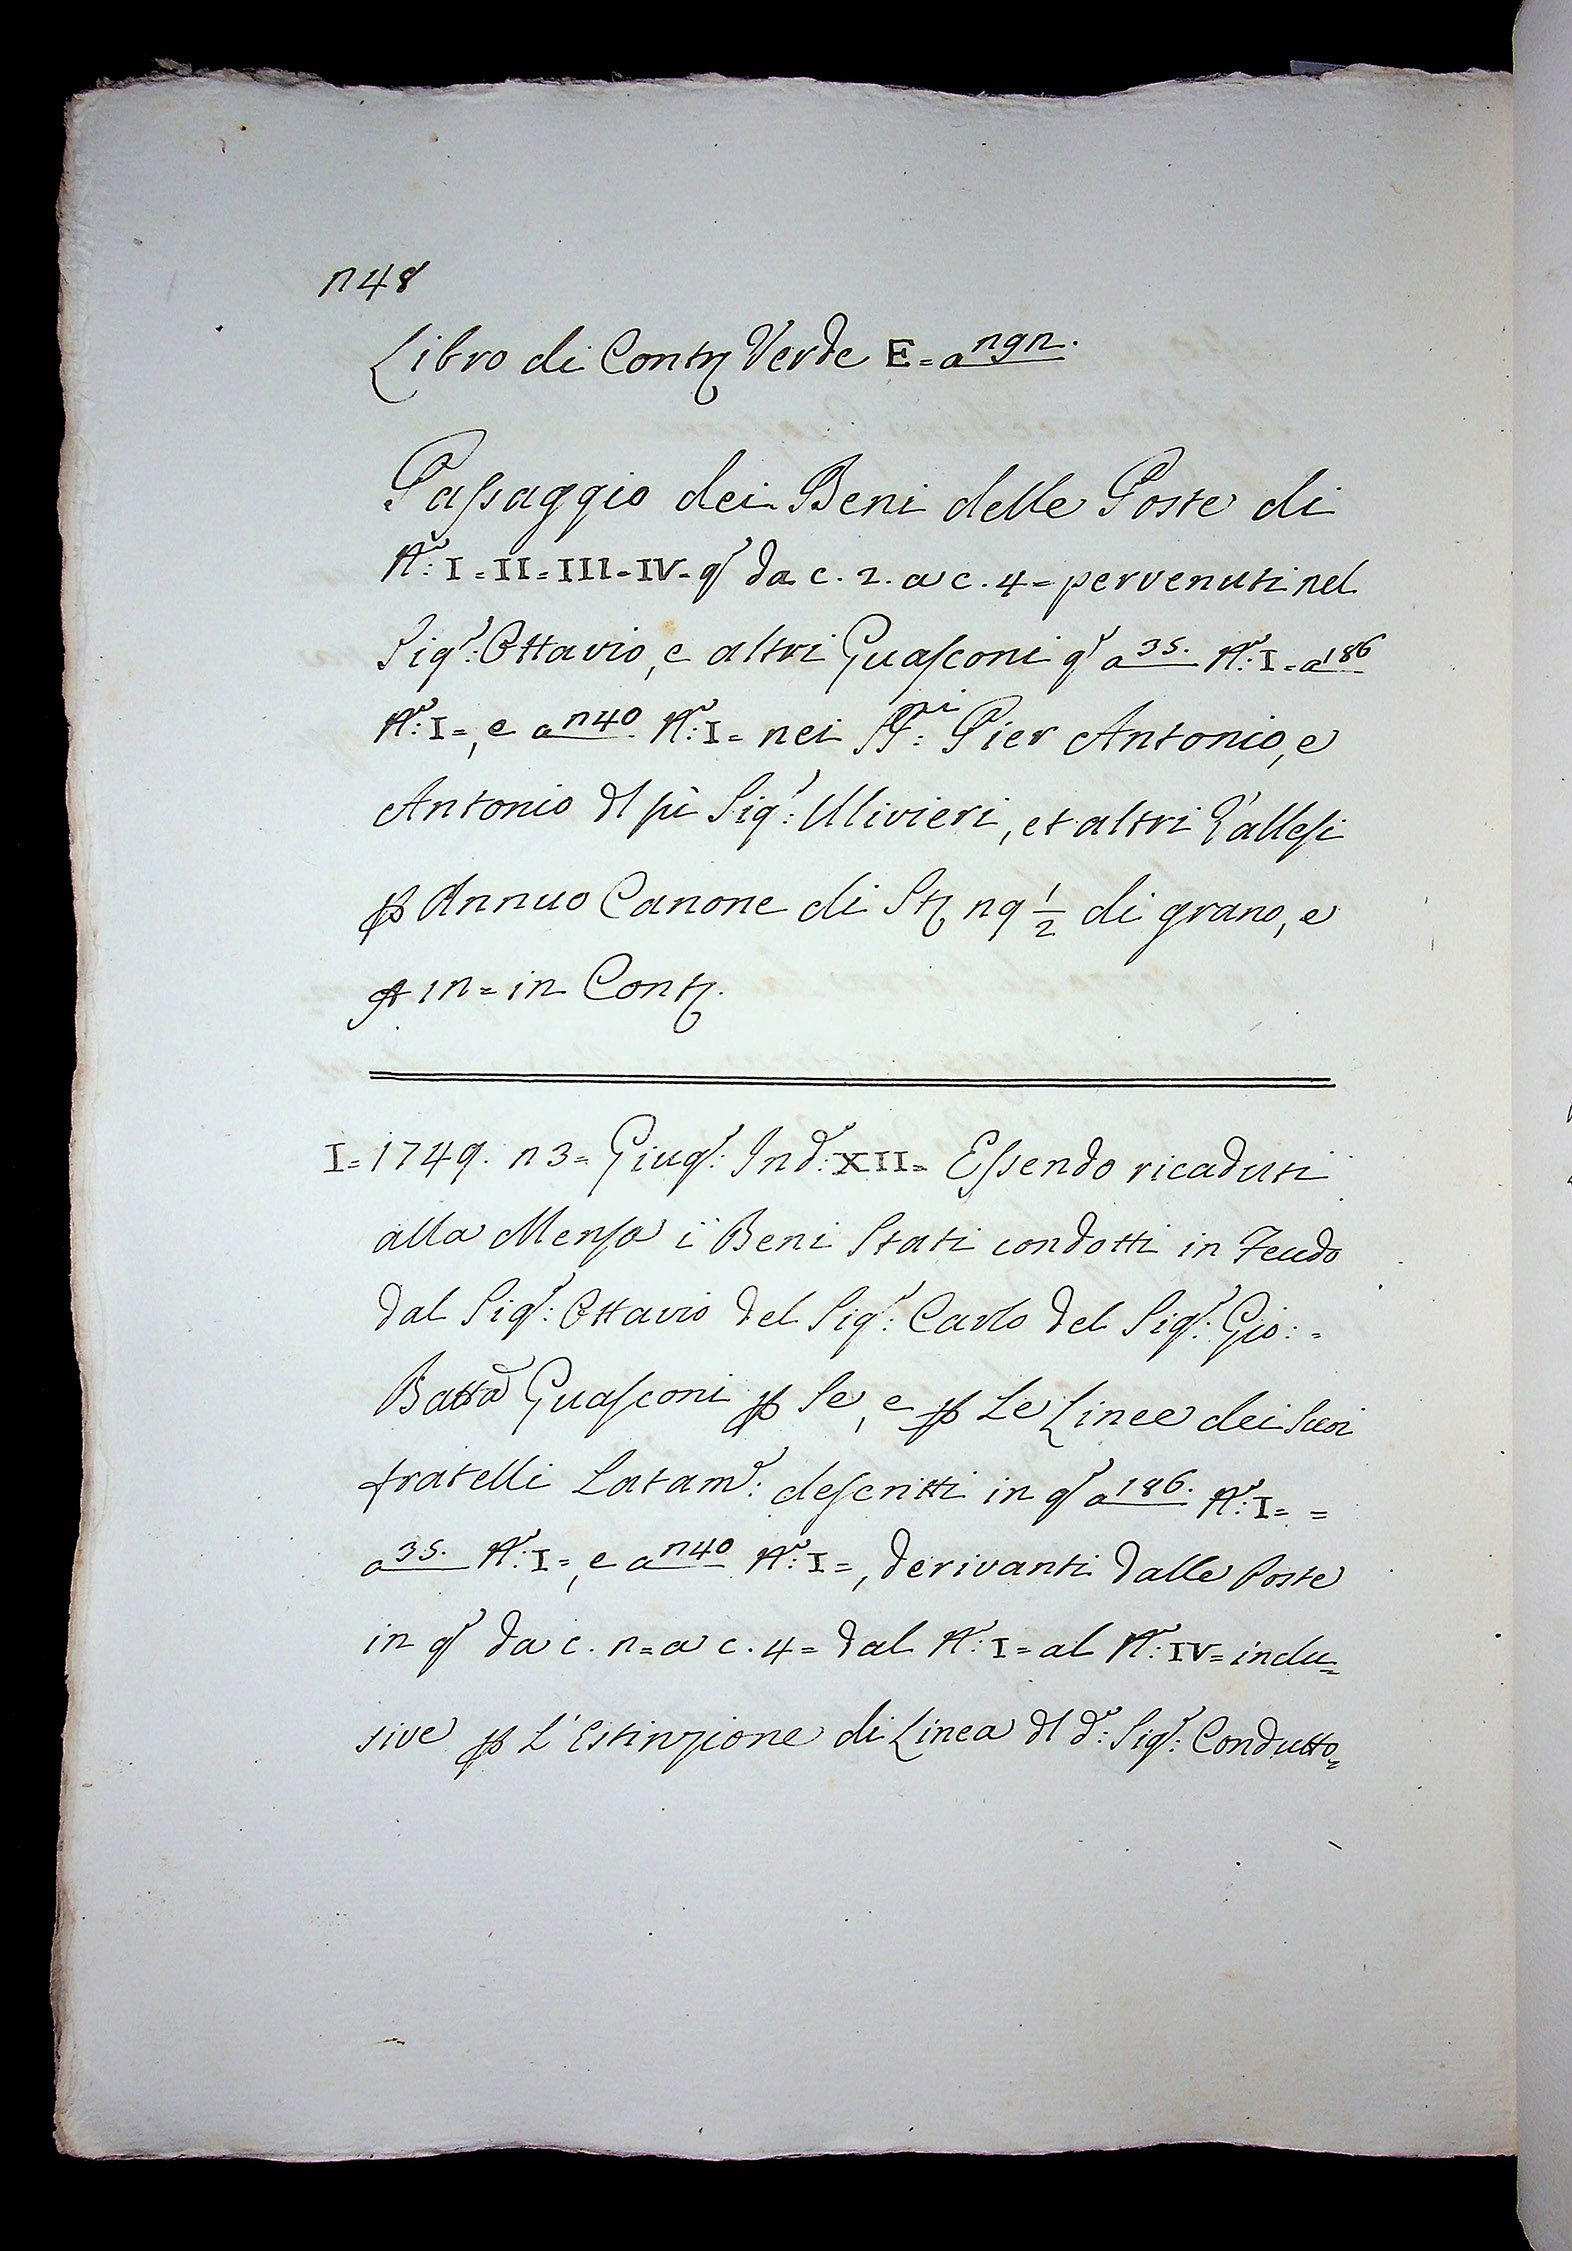 248
Libro di Contt Verde E = a 292.
Passaggio dei Beni delle Poste di
N.º: I = II = III = IV = q.º da c. 2. a c. 4 = pervenuti nel
Sig.r: Ottavio, e altri Guasconi q.º a 35. N.º: I = a 186
N.º: I =, e a 240 N.º: I = nei SS.ri: Pier Antonio, e
Antonio dl fù Sig.r: Ulivieri, et altri Tallesi
p Annuo Canone di St 29 1/2 di grano, e
12 = in Contt.
I = 1749. 23 = Giug.º: Ind.e: XII = Essendo ricaduti
alla Mensa i Beni Stati condotti in Feudo
dal Sig.r: Ottavio del Sig.r: Carlo del Sig.r: Gio: =
Batta Guasconi p Se, e p Le Linee dei Suoi
fratelli Latam.e: descritti in q.º a 186. N.º: I = =
a 35. N.º: I =, e a 240 N.º: I =, derivanti dalle Poste
in q.º da c. 2 = a c. 4 = dal N.º: I = al N.º: IV = inclu=
sive p L'Estinzione di Linea dl d.º: Sig.r: Condutto=